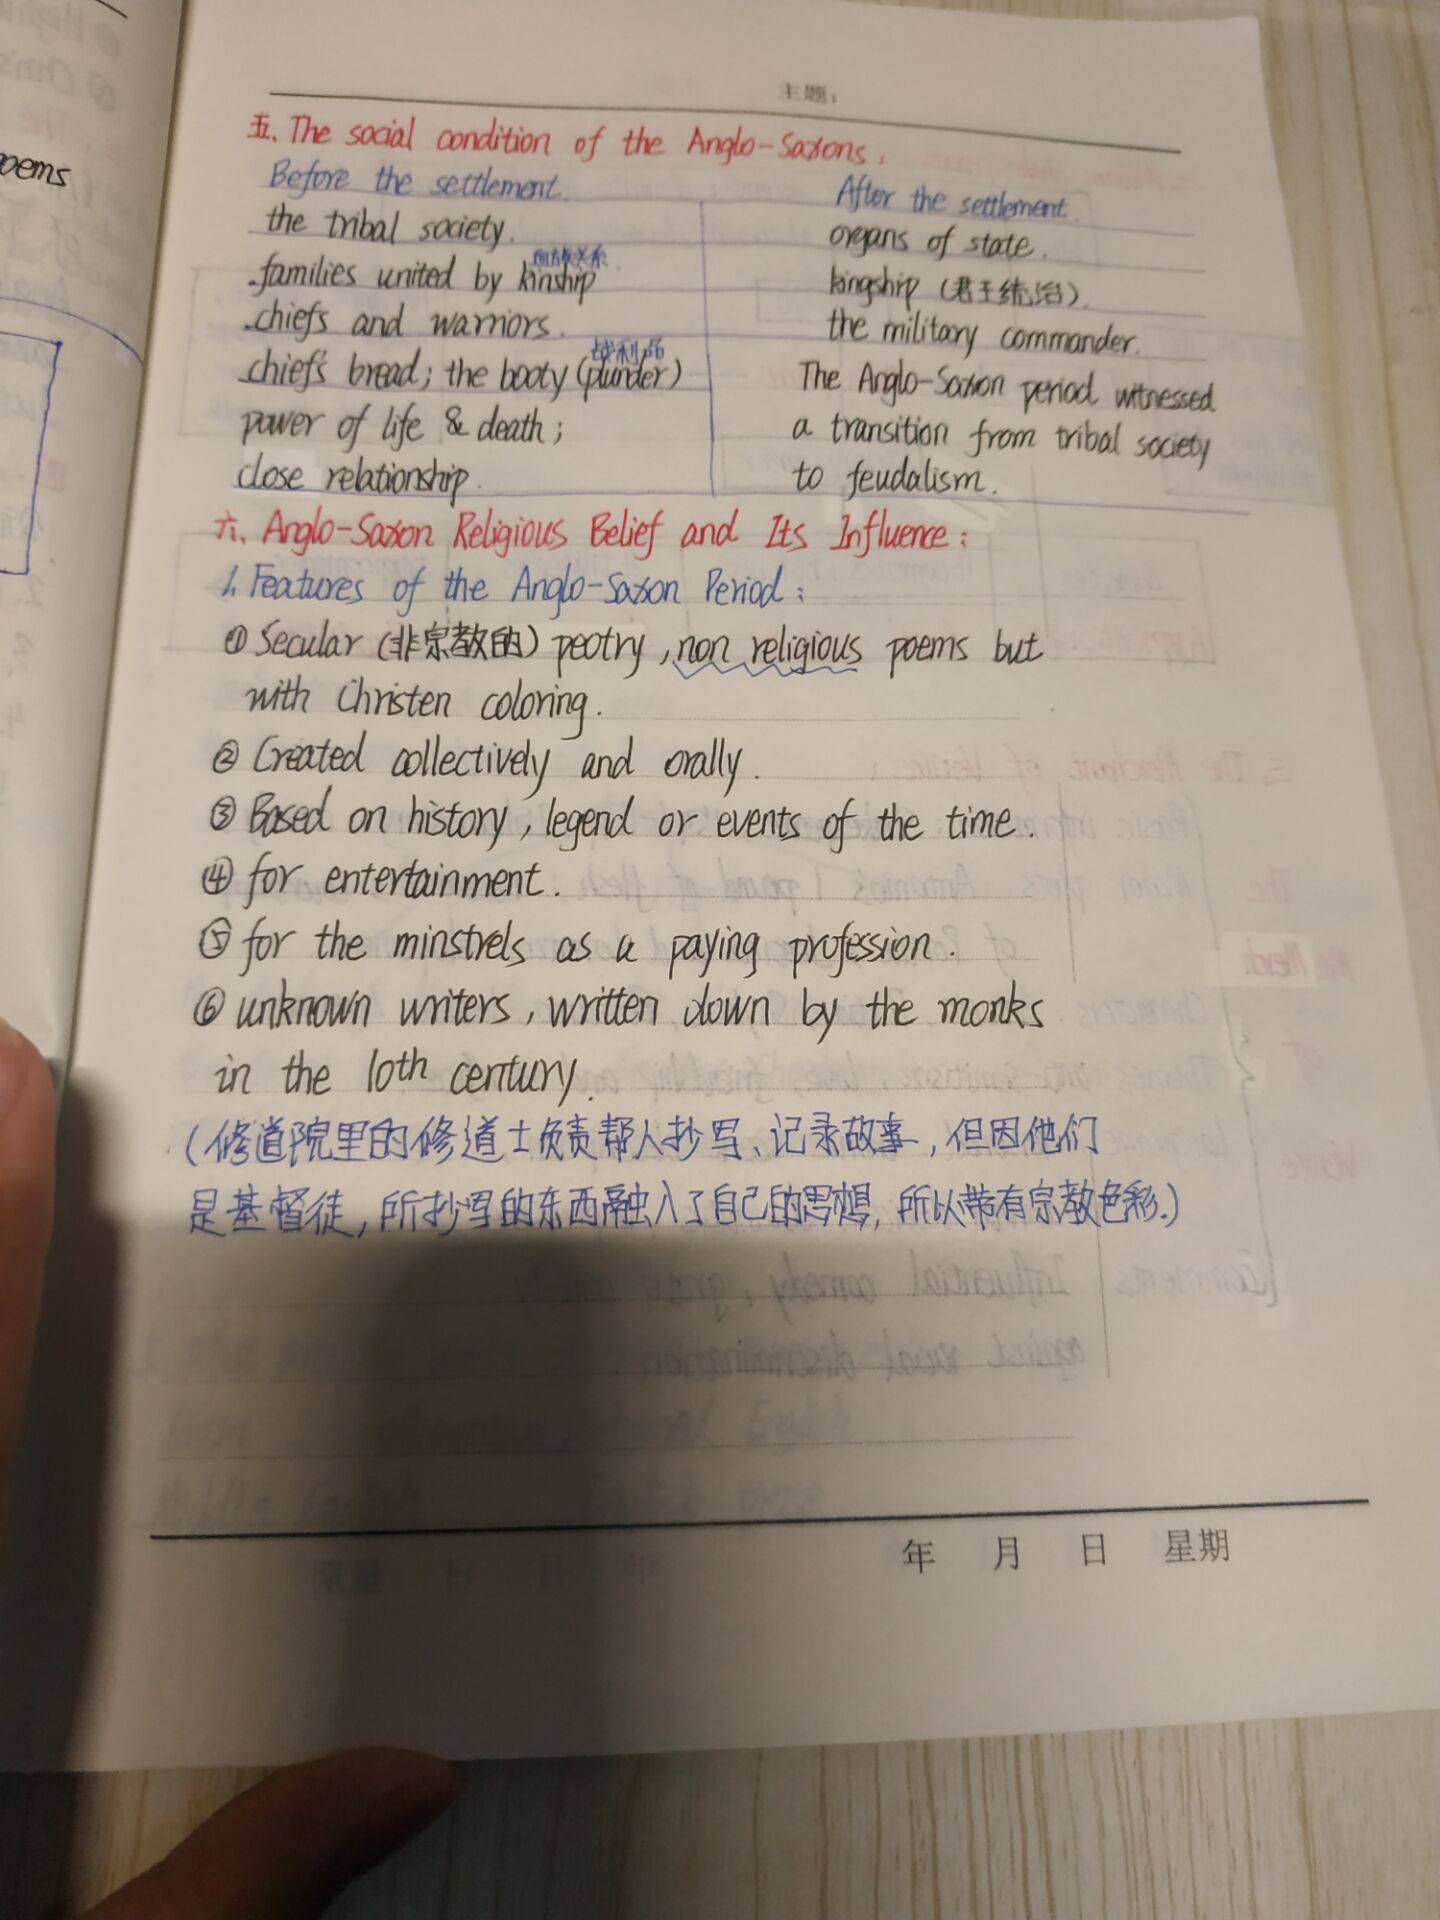 主题：
五、The social condition of the Anglo-Saxons.
Before the settlement.
the tribal society.
families united by kinship
chiefs and warriors.
战利品
chief's bread; the booty (plunder)
power of life & death;
close relationship.
After the settlement
organs of state.
kingship (君王统治).
the military commander.
The Anglo-Saxon period witnessed
a transition from tribal society
to feudalism.
六、Anglo-Saxon Religious Belief and Its Influence:
1. Features of the Anglo-Saxon Period:
① Secular (非宗教的) peotry, non religious poems but
with Christen coloring.
② Created collectively and orally.
③ Based on history, legend or events of the time.
④ for entertainment.
⑤ for the minstrels as a paying profession.
⑥ unknown writers, written down by the monks
in the 10th century.
(修道院里的修道士负责帮人抄写、记录故事，但因他们
是基督徒，所抄写的东西融入了自己的思想，所以带有宗教色彩.)
年 月 日 星期
oems